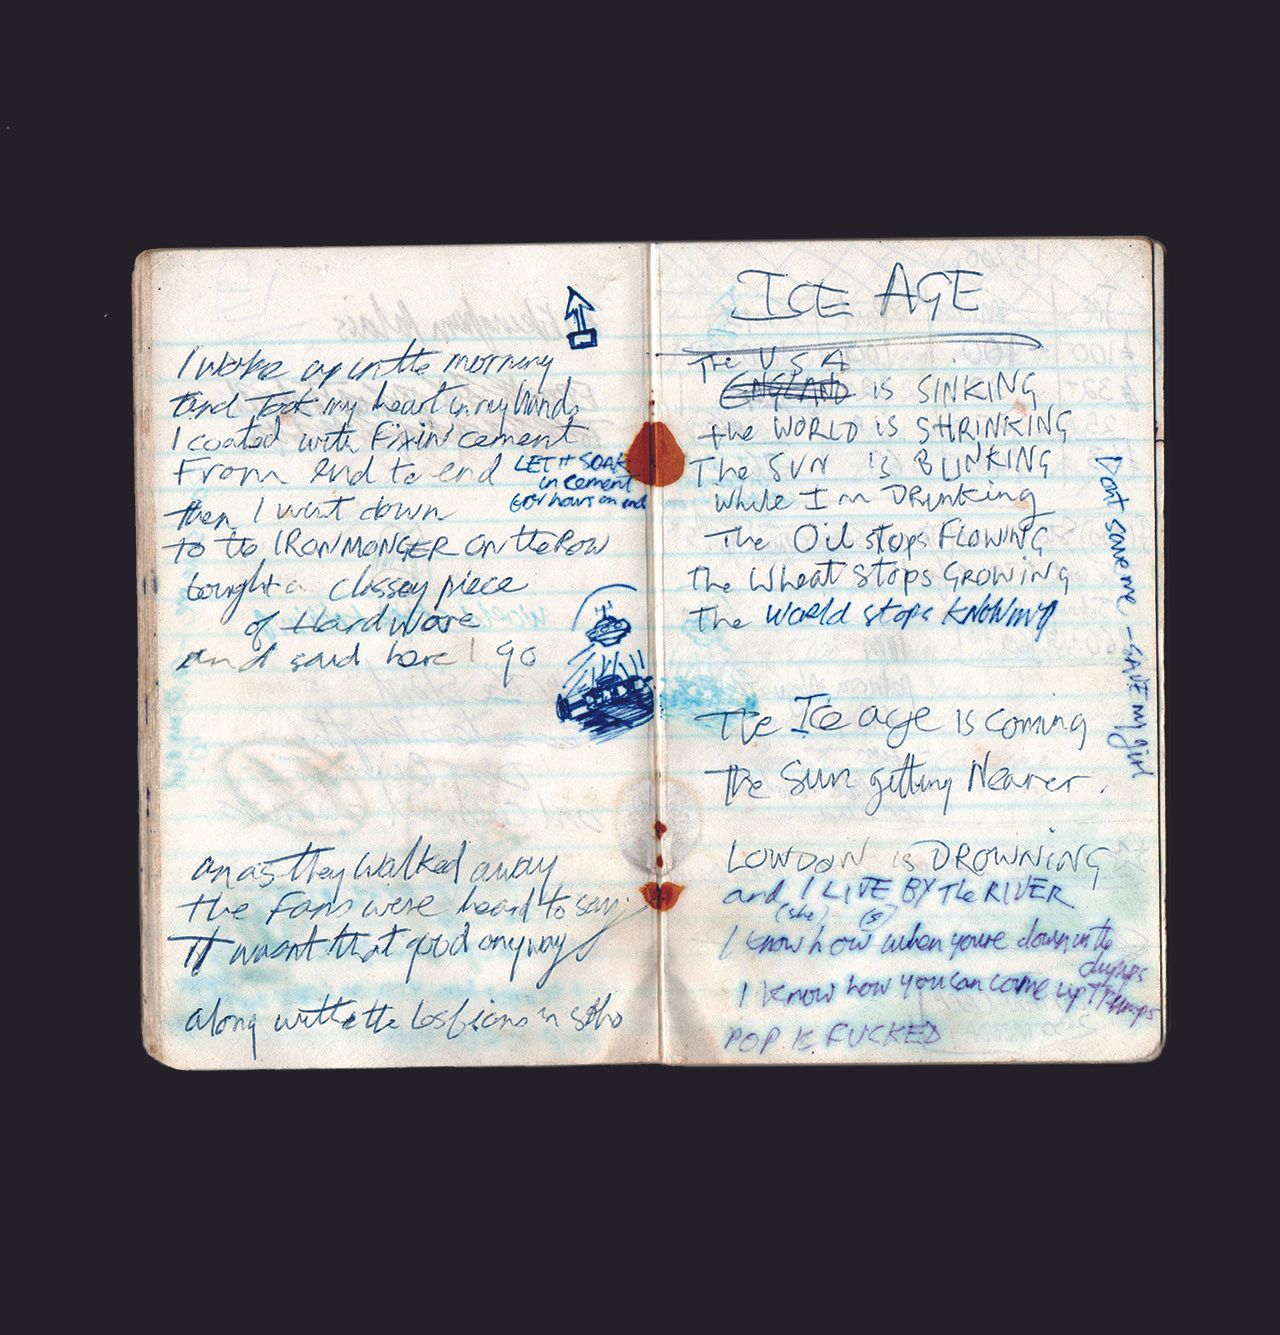 I woke up in the morning
and Took my heart in my hands
I coated with fixin' cement
From end to end
LET IT SOAK
in cement
for hours on end
then I went down
to the IRONMONGER on the ROW
bought a classey piece
of Hardware
and said here I go
an as they walked away
the fans were heard to say
IT wasnt that good anyway
along with the lesbians in soho
ICE AGE
The U S A
ENGLAND IS SINKING
the WORLD IS SHRINKING
The SUN IS BLINKING
while I'm DRinking
The Oil stops FLOWING
the Wheat stops GROWING
the world stops KNOWING
The Ice age is coming
the Sun getting Nearer.
LONDON is DROWNING
and I LIVE BY The RIVER
(she) (s)
I know how when you're down in the
dumps
I know how you can come up Trumps
POP IS FUCKED
Dont save me - SAVE my girl